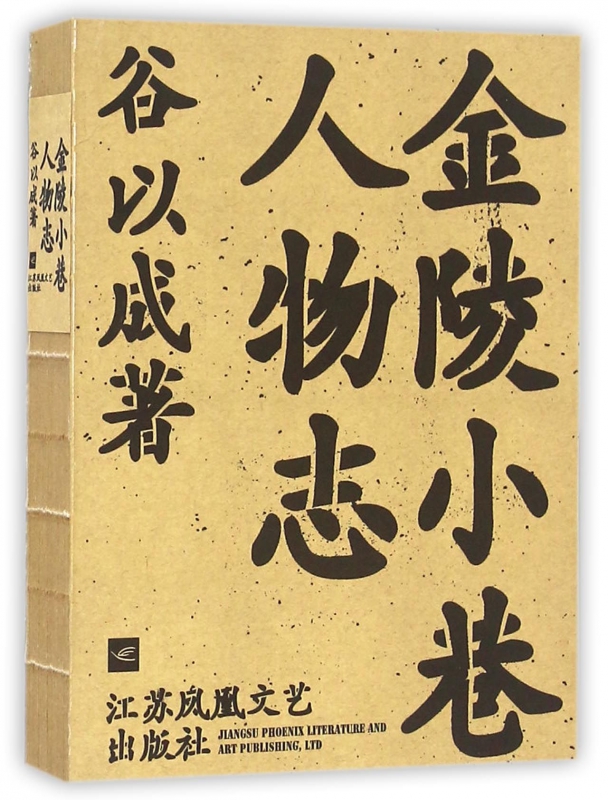 金陵小巷
人物志
谷以成著
江苏凤凰文艺
出版社
JIANGSU PHOENIX LITERATURE AND
ART PUBLISHING, LTD
金陵小巷
人物志
谷以成著
江苏凤凰文艺
出版社